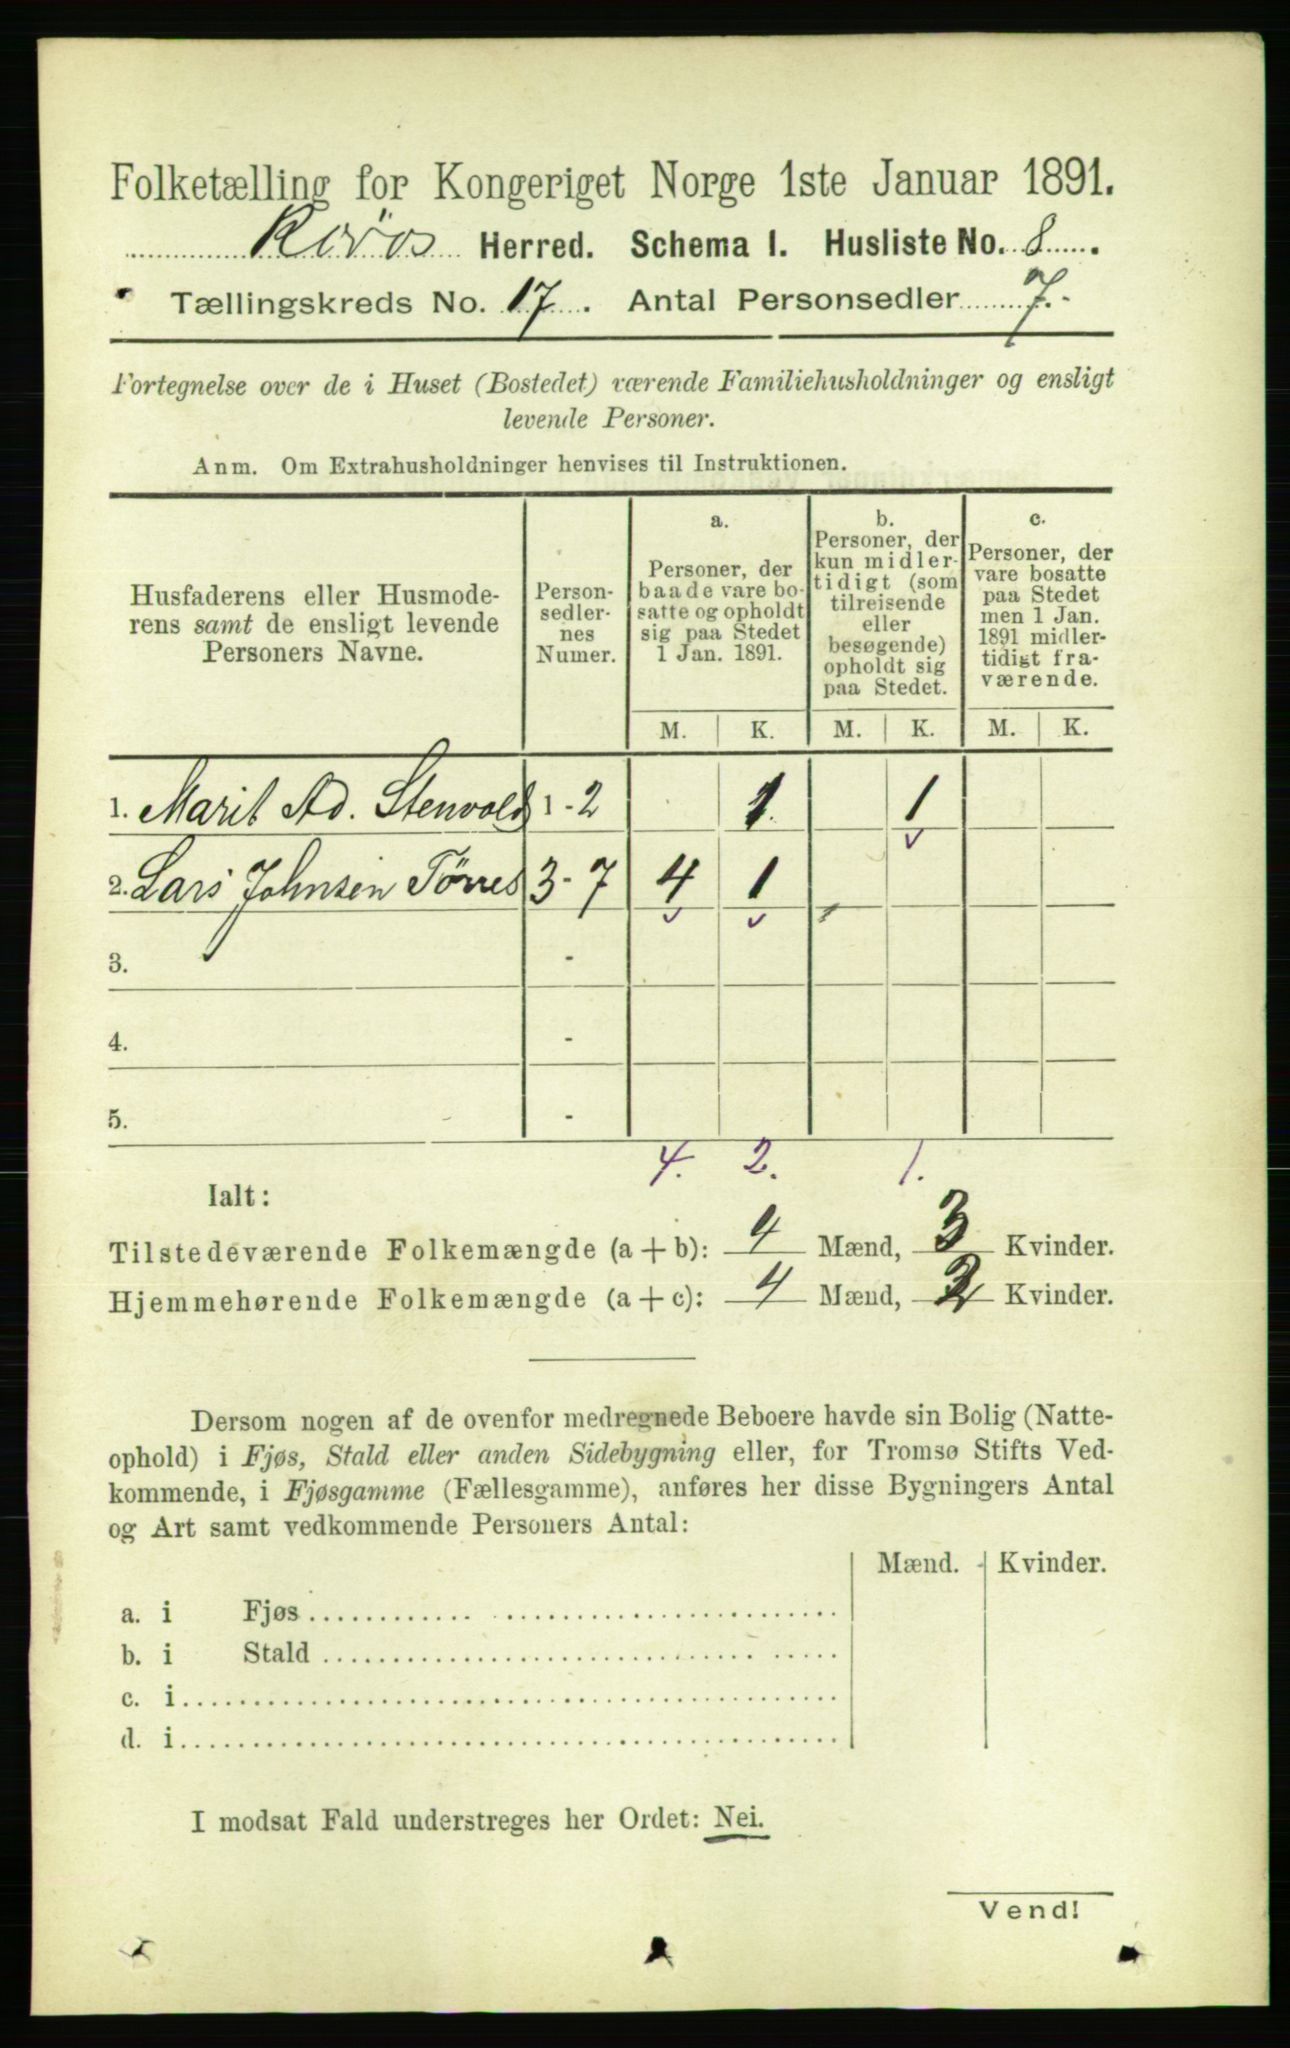 Folketælling for Kongeriget Norge 1ste Januar 1891.
Røros Herred. Schema 1. Husliste No. 8.
Tællingskreds No. 17. Antal Personsedler 7.
Fortegnelse over de i Huset (Bostedet) værende Familiehusholdninger og ensligt
levende Personer.
Anm. Om Extrahusholdninger henvises til Instruktionen.
Husfaderens eller Husmode-
rens samt de ensligt levende
Personers Navne.
Person-
sedler-
nes
Numer.
a.
Personer, der
baade vare bo-
satte og opholdt
sig paa Stedet
1 Jan. 1891.
b.
Personer, der
kun midler-
tidigt (som
tilreisende
eller
besøgende)
opholdt sig
paa Stedet.
c.
Personer, der
vare bosatte
paa Stedet
men 1 Jan.
1891 midler-
tidigt fra-
værende.
M. K. M. K. M. K.
1. Marit Ad. Stenvold 1 - 2 1 1
2. Lars Johnsen Tørres 3 - 7 4 1
3. -
4. -
5. -
4. 2. 1.
Ialt:
Tilstedeværende Folkemængde (a + b): 4 Mænd, 3 Kvinder.
Hjemmehørende Folkemængde (a + c): 4 Mænd, 2 Kvinder.
Dersom nogen af de ovenfor medregnede Beboere havde sin Bolig (Natte-
ophold) i Fjøs, Stald eller anden Sidebygning eller, for Tromsø Stifts Ved-
kommende, i Fjøsgamme (Fællesgamme), anføres her disse Bygningers Antal
og Art samt vedkommende Personers Antal:
Mænd. Kvinder.
a. i Fjøs
b. i Stald
c. i
d. i
I modsat Fald understreges her Ordet: Nei.
Vend!